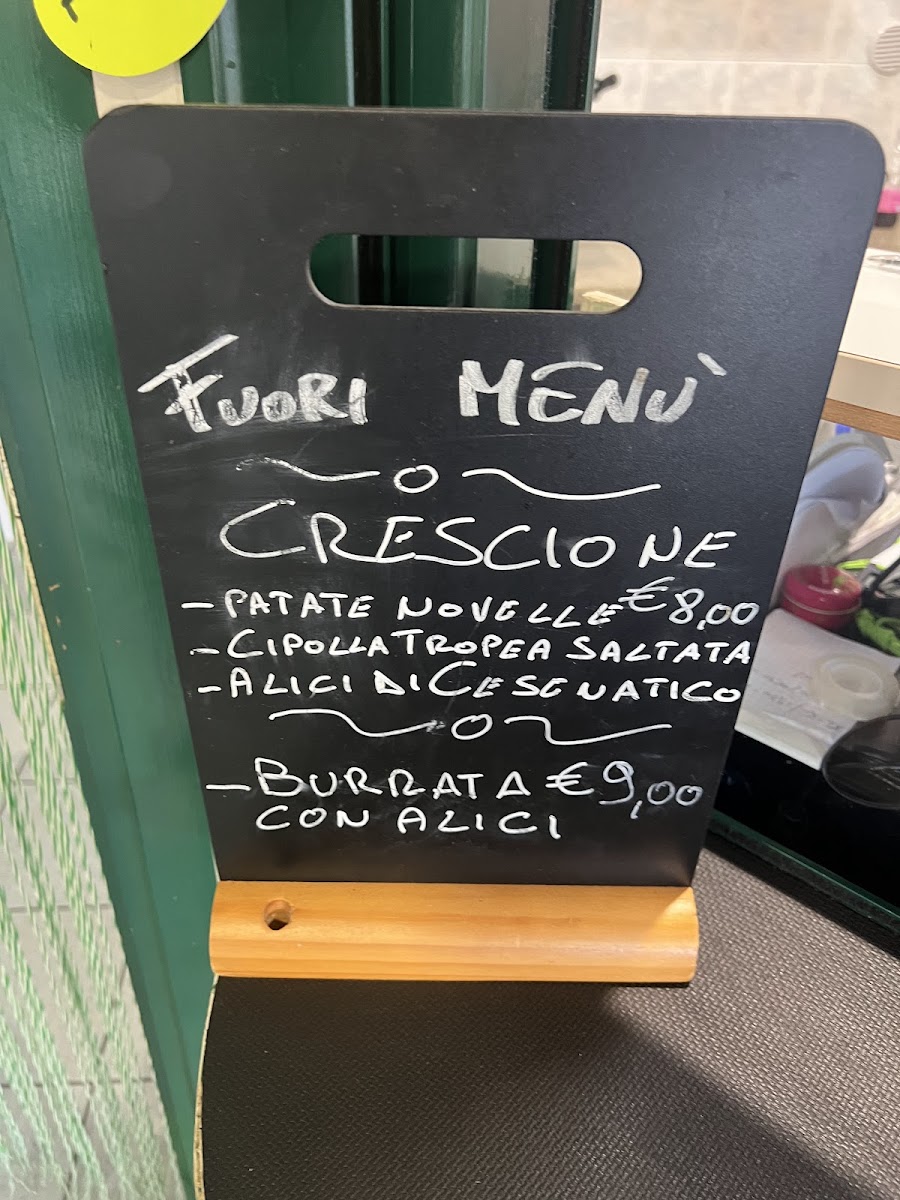 FUORI MENÙ
CRESCIONE
- PATATE NOVELLE €8,00
- CIPOLLA TROPEA SALTATA
- ALICI DI CESENATICO
- BURRATA €9,00
CON ALICI